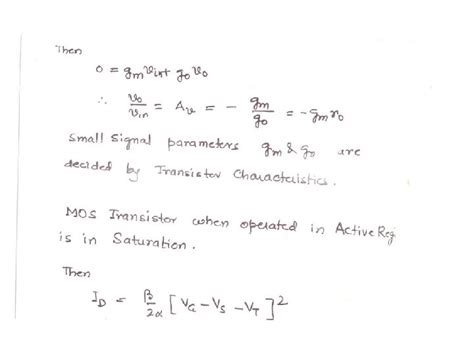 Then
0 = gm vin + go vo
∴ vo/vin = Av = - gm/go = -gm ro
small signal parameters gm & go are
decided by Transistor Characteristics.
MOS Transistor when operated in Active Reg
is in Saturation.
Then
ID = β/2α [VG - VS - VT]²